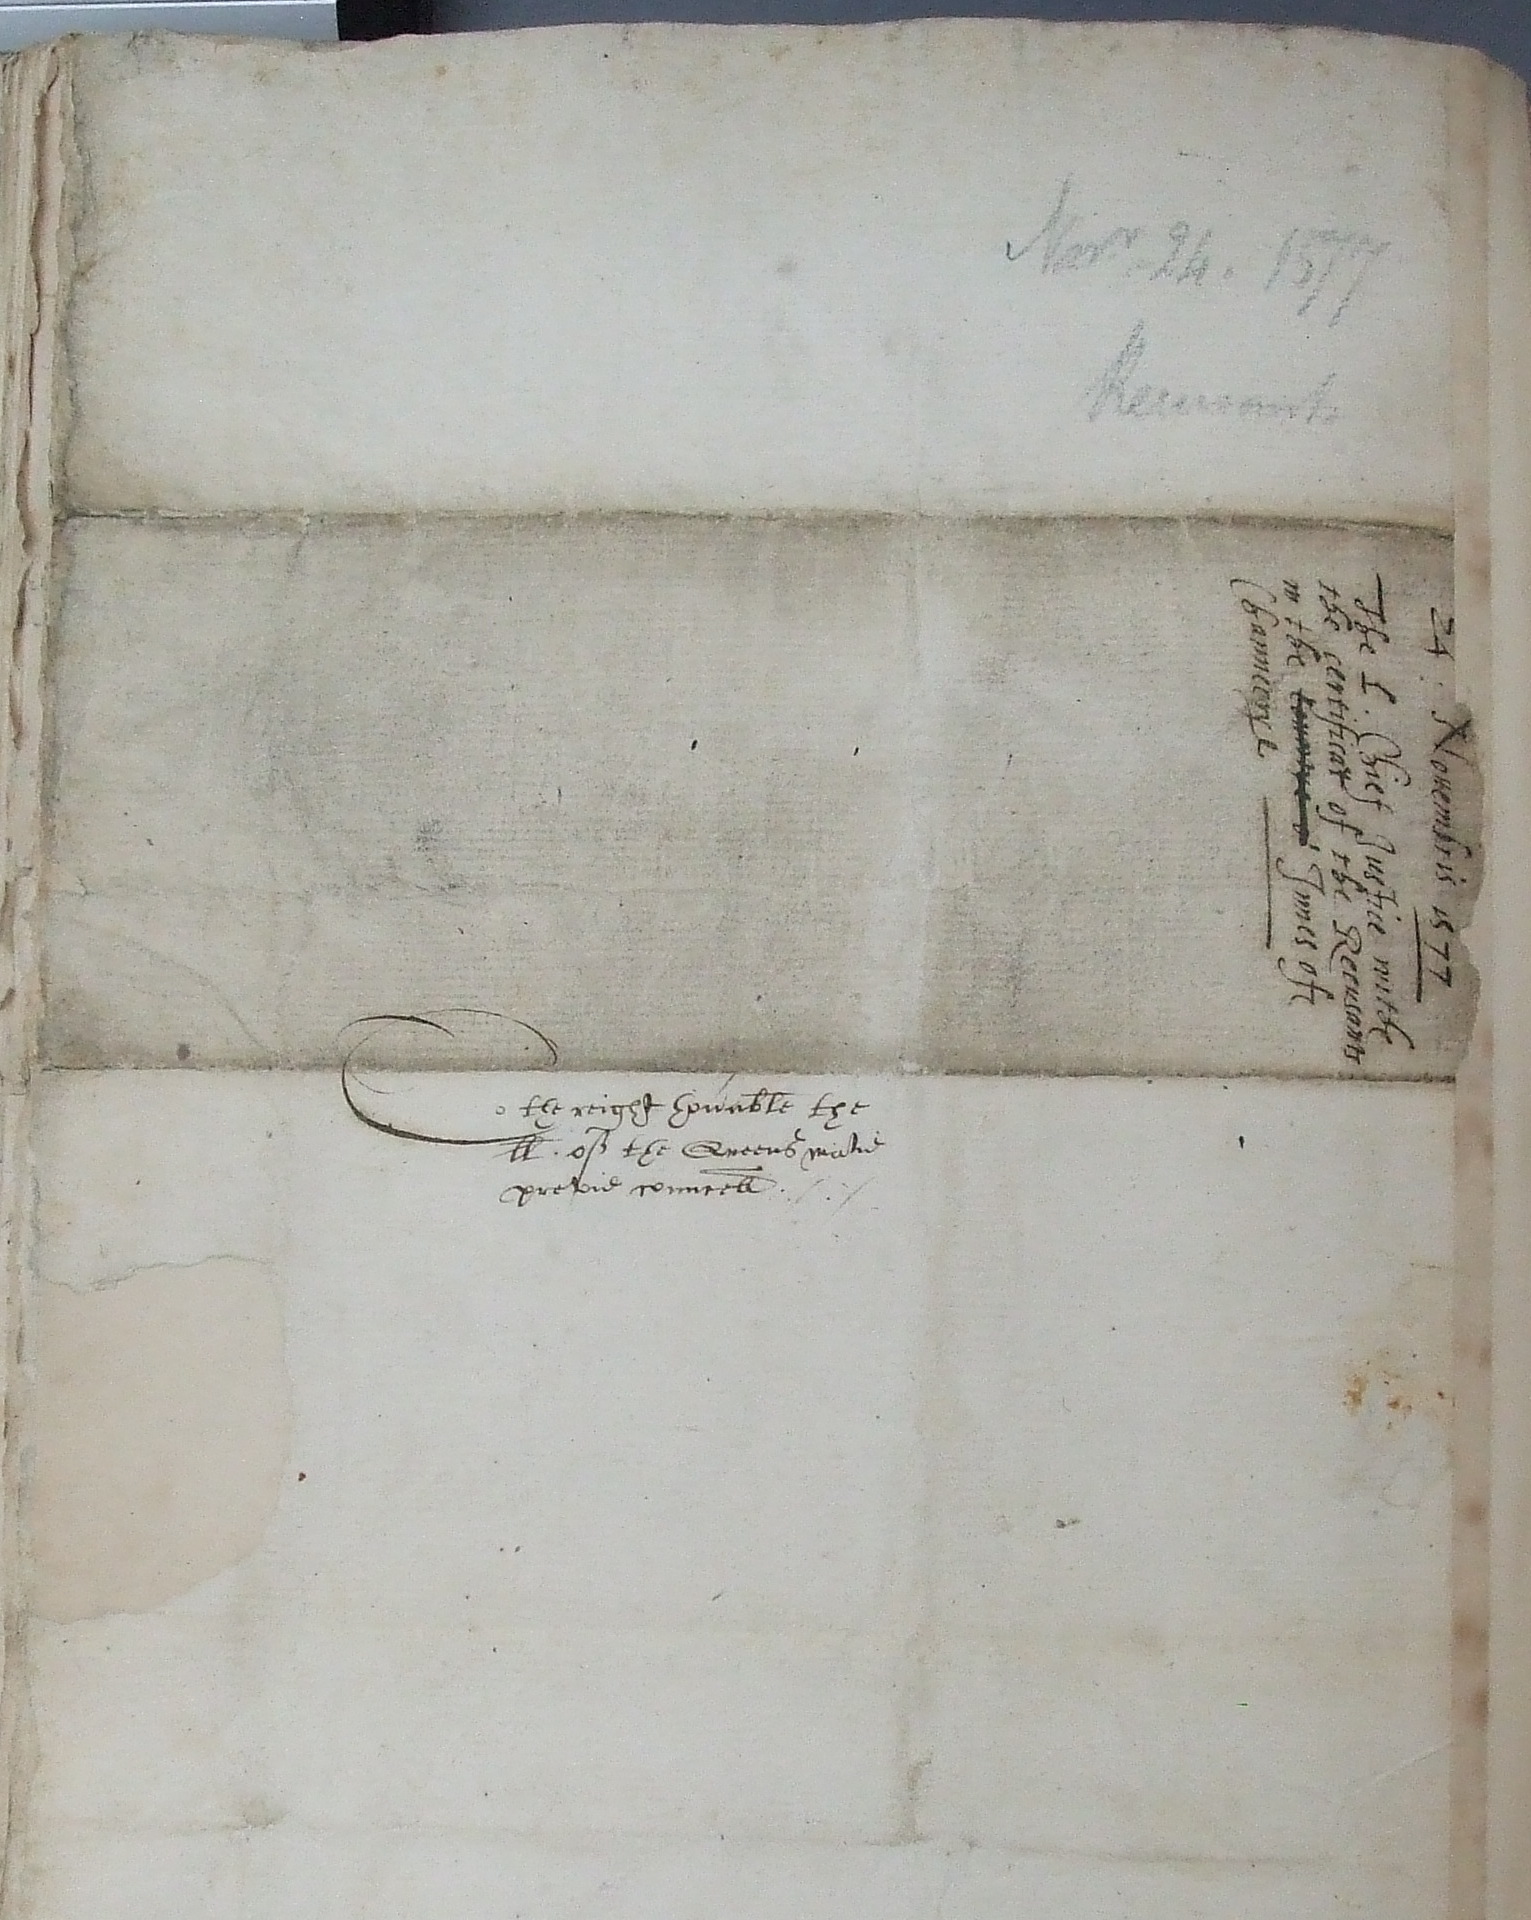 Novr 24. 1577
Recusants
24. Novembris 1577
The L. Chief Justice with
the certificat of the Recusants
in the Innes of
Channcery
To the reight honnable the
ll. of the Queens matie
previe councell.